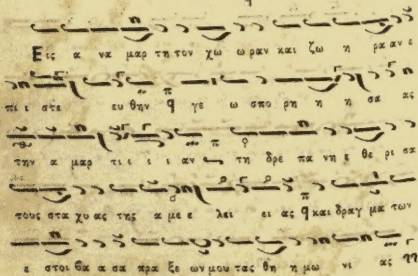 Εις α να μαρ τη τον χω ω ραν και ζω η ρα αν ε
πι ι στε ευ θην γε ω σπο ρη η η σα ας
την α μαρ τι ι ι ι αν τη δρε πα νη ε θε ρι σα
τους στα χυ ας της α με ε λει ει ας και δραγ μα των
ε στοι βα α σα πρα ξε ων μου τας θη η μω νι ας